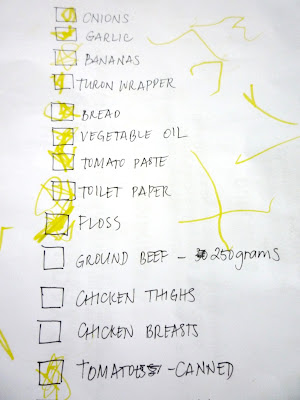 ONIONS
GARLIC
BANANAS
TURON WRAPPER
BREAD
VEGETABLE OIL
TOMATO PASTE
TOILET PAPER
FLOSS
GROUND BEEF - 250grams
CHICKEN THIGHS
CHICKEN BREASTS
TOMATOES -CANNED